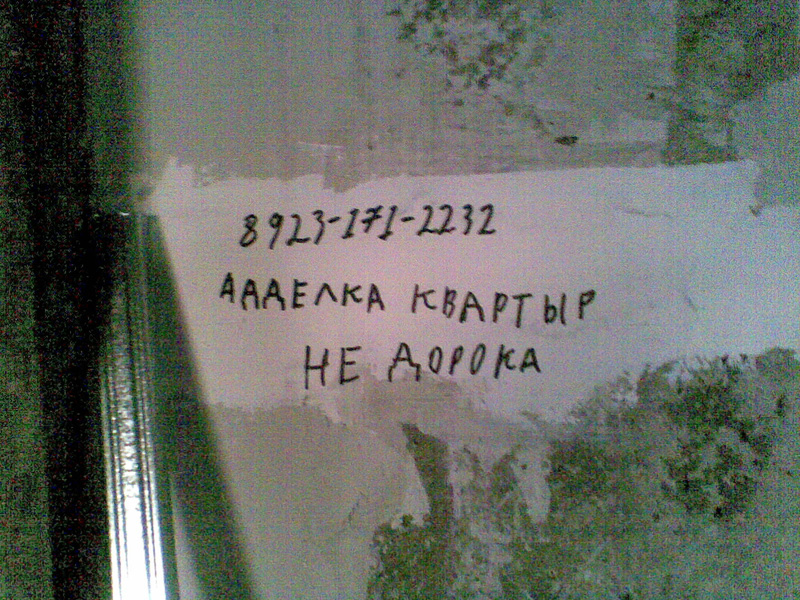 8923-171-2232
ААДЕЛКА КВАРТЫР
НЕ ДОРОКА